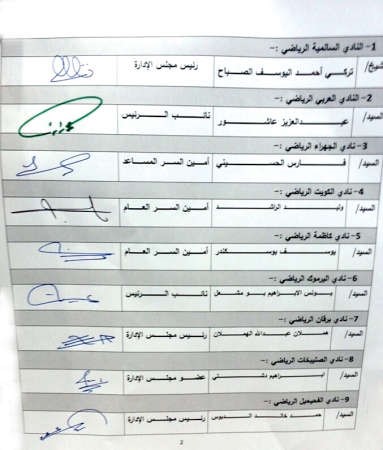 1- النادي السالمية الرياضي :-
الشيخ/ تركي أحمد اليوسف الصباح رئيس مجلس الإدارة
2- النادي العربي الرياضي :-
السيد/ عبدالعزيز عاشور نائب الرئيس
3- نادي الجهراء الرياضي :-
السيد/ فارس الحسيني أمين السر المساعد
4- نادي الكويت الرياضي :-
السيد/ وليد الراشد أمين السر العام
5- نادي كاظمة الرياضي :-
السيد/ يوسف بوسكندر أمين السر العام
6- نادي اليرموك الرياضي :-
السيد/ يونس الابراهيم بو مشعل نائب الرئيس
7- نادي برقان الرياضي :-
السيد/ هملان عبدالله الهملان رئيس مجلس الإدارة
8- نادي الصليبخات الرياضي :-
السيد/ ابراهيم دشتي عضو مجلس الإدارة
9- نادي الفحيحيل الرياضي :-
السيد/ حمد خالد الدبوس رئيس مجلس الإدارة
2